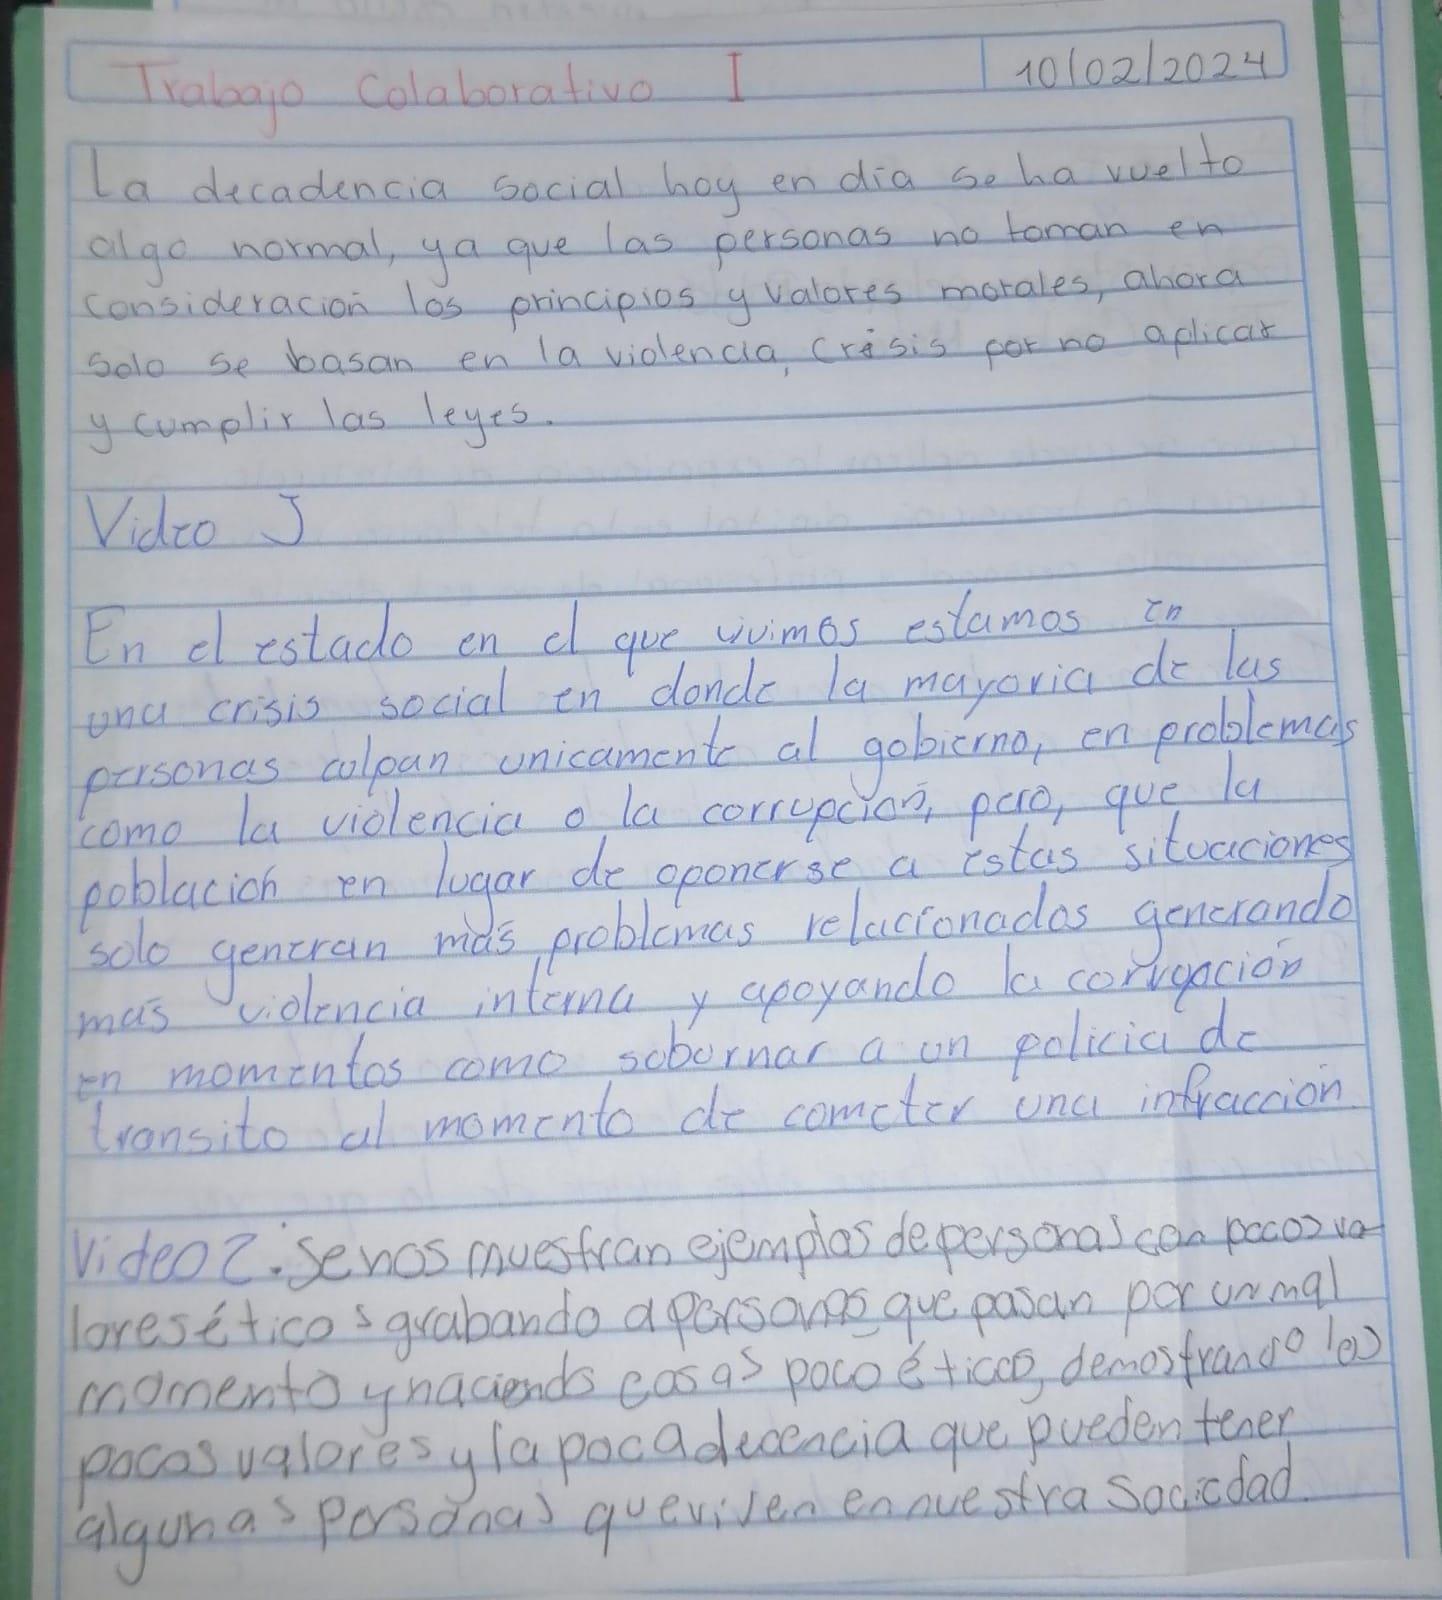 Trabajo Colaborativo I 10/02/2024
La decadencia social hoy en dia se ha vuelto
algo normal, ya que las personas no toman en
consideración los principios y valores morales, ahora
solo se basan en la violencia, crisis por no aplicar
y cumplir las leyes.
Video I
En el estado en el que vivimos estamos en
una crisis social en donde la mayoria de las
personas culpan unicamente al gobierno, en problemas
como la violencia o la corrupción, pero, que la
población en lugar de oponerse a estas situaciones
solo generan más problemas relacionados generando
más violencia interna y apoyando la corrupción
en momentos como sobornar a un policia de
transito al momento de cometer una infracción
Video 2. Se nos muestran ejemplos de personas con pocos va
lores éticos grabando a personas que pasan por un mal
momento y haciendo cosas poco éticas, demostrando los
pocos valores y la poca decencia que pueden tener
algunas personas que viven en nuestra sociedad.